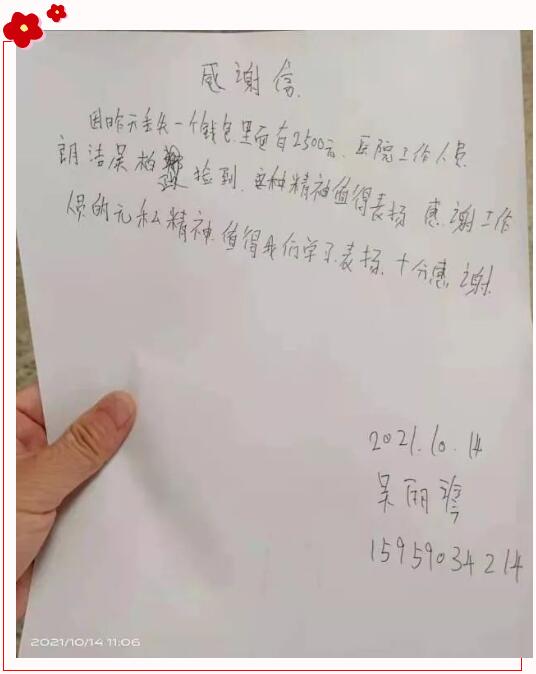 感谢信
因昨天丢失一个钱包里面有2500元、医院工作人员
朗洁吴柏 捡到,这种精神值得表扬 感谢工作
人员的无私精神.值得我们学习表扬、十分感谢.
2021.10.14
吴丽
15959034214
2021/10/14 11:06